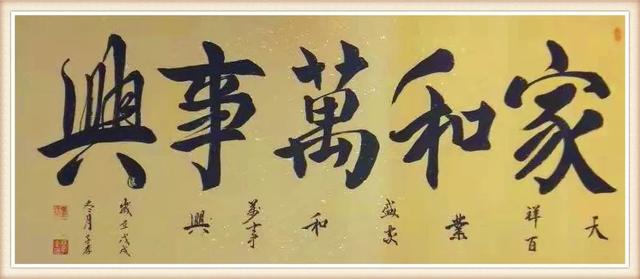 家和萬事興
天
祥百
業
盛家
和
萬事
興
歲在戊戌
冬月